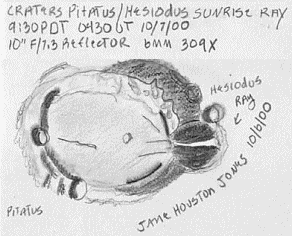 CRATERS PITATUS/HESIODUS SUNRISE RAY
9:30PDT 0430UT 10/7/00
10" F/7.3 REFLECTOR 6MM 309X
HESIODUS
RAY
PITATUS
JANE HOUSTON JONES 10/6/00